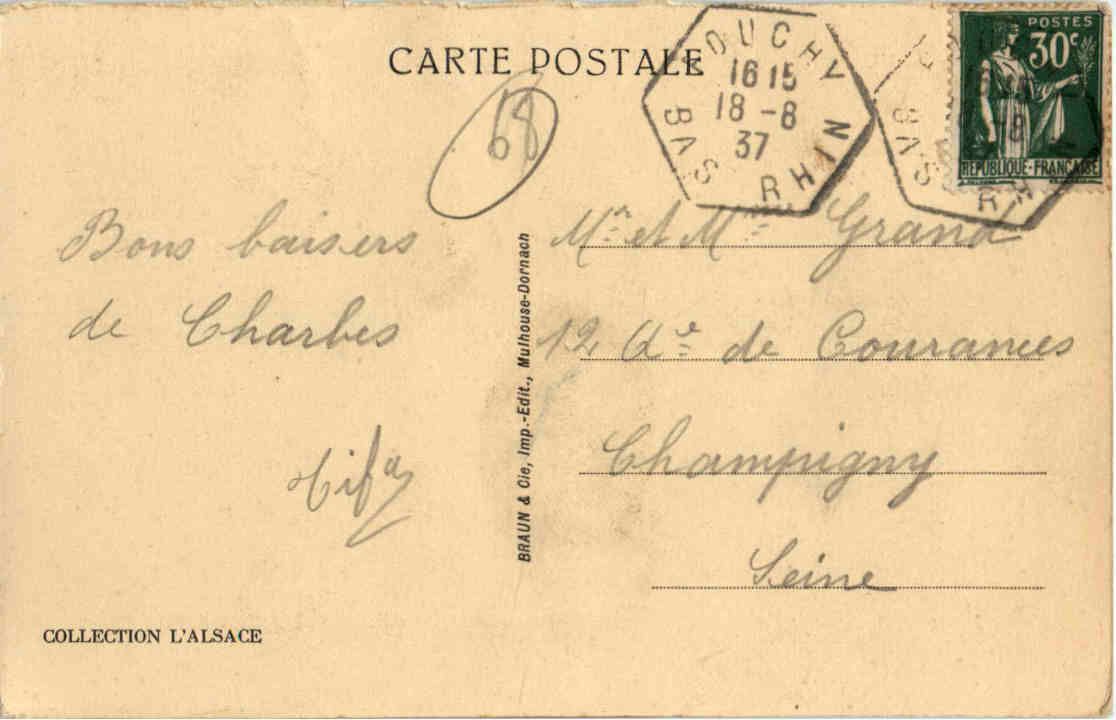 CARTE POSTALE
FOUCHY
16 15
18 - 8
37
BAS RHIN
POSTES
30c
REPUBLIQUE-FRANÇAISE
68
Bons baisers
de Charbes
BRAUN & Cie, Imp.-Edit., Mulhouse-Dornach
Mr et Mme Grand
12 de Courances
Champigny
Seine
COLLECTION L'ALSACE